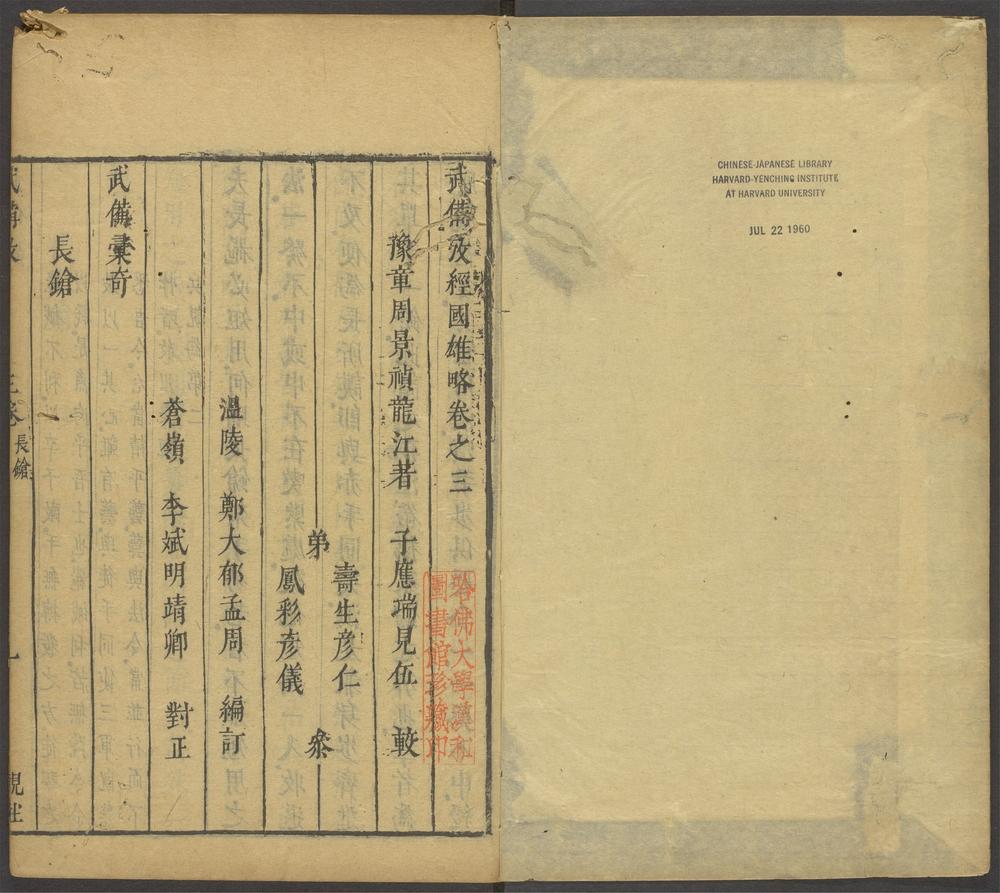 CHINESE-JAPANESE LIBRARY
HARVARD-YENCHING INSTITUTE
AT HARVARD UNIVERSITY
JUL 22 1960
武備攷經國雄略卷之三
豫章周景禎龍江著 子應瑞見伍 較
壽生彥仁
弟 叅
鳳彩彥儀
溫陵 鄭大郁孟周 編訂
蒼嶺 李斌明靖卿 對正
武備彙奇
長鎗
武備攷 三卷 長鎗 一 觀社
哈佛大學漢和
圖書館珍藏印